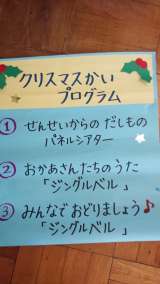 クリスマスかい
プログラム
① せんせいからの だしもの
パネルシアター
② おかあさんたちのうた
「ジングルベル」
③ みんなで おどりましょう♪
「ジングルベル」